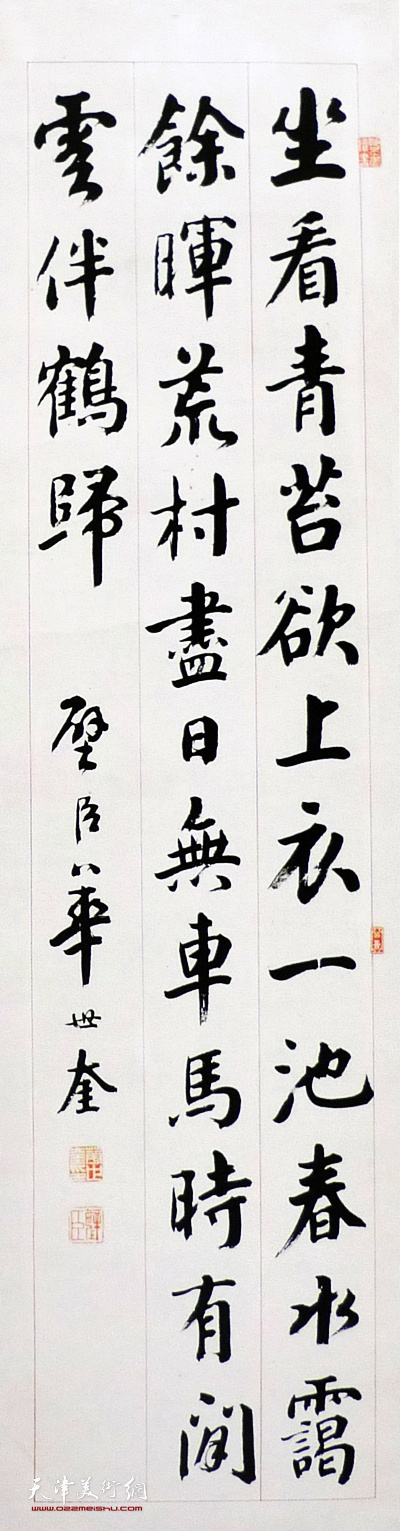 坐看青苔欲上衣一池春水靄
餘暉荒村盡日無車馬時有閒
雲伴鶴歸
璧臣華世奎
天津美術網
www.022meishu.com